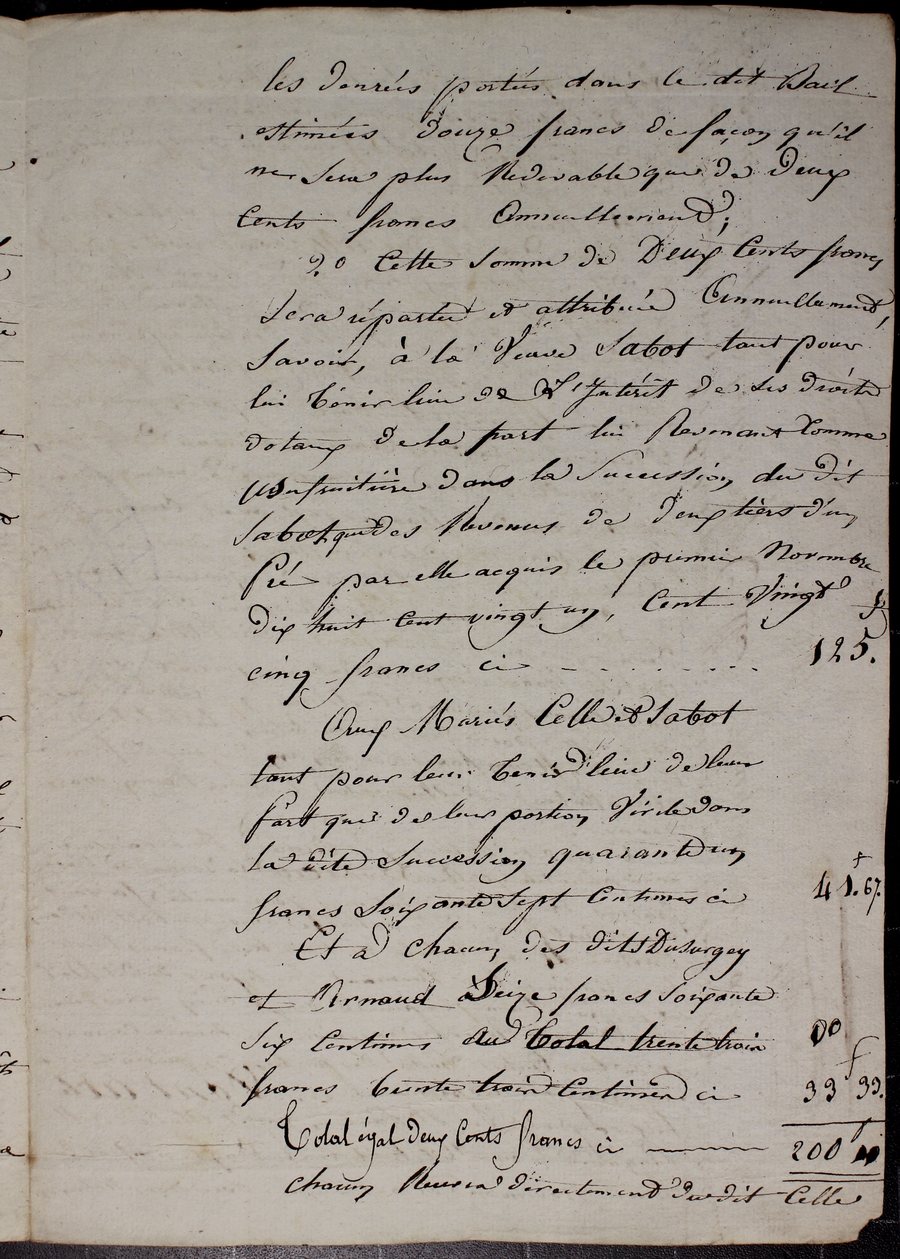 les denrées portées dans le dit Bail
estimées douze francs de façon qu'il
ne sera plus Redevable que de Deux
Cents francs Annuellement;
2.o Cette somme de Deux Cents francs
sera répartie et attribuée Annuellement,
Savoir, à la Veuve Sabot tant pour
lui tenir lieu de l'Intérêt de ses droits
dotaux de la part lui Revenant Comme
usufruitière dans la Succession du dit
Sabot que des Revenus de deux tiers d'un
Pré par elle acquis le premier Novembre
dix huit cent vingt un, Cent Vingt
cinq francs ci 125.
Aux Mariés Celle et Sabot
tant pour leur tenir lieu de leur
part que de leur portion Virile dans
la dite Succession quarante un
francs Soixante Sept Centimes ci 41.67.
Et à chacun des dits Dusurgey
et Arnaud Seize francs Soixante
six Centimes Au Total trente trois
francs trente trois Centimes ci 33 33.
Total égal deux Cents francs ci 200
chacun Recevra directement du dit Celle